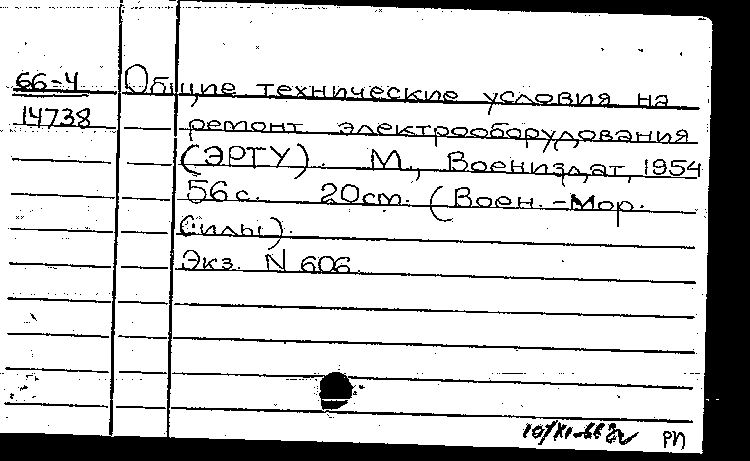 66-4 Общие технические условия на
14738 ремонт электрооборудования
(ЭРТУ). М., Воениздат, 1954
56 с. 20 ст. (Воен.-Мор.
Силы).
Экз. N 606.
10/XI-66г РП